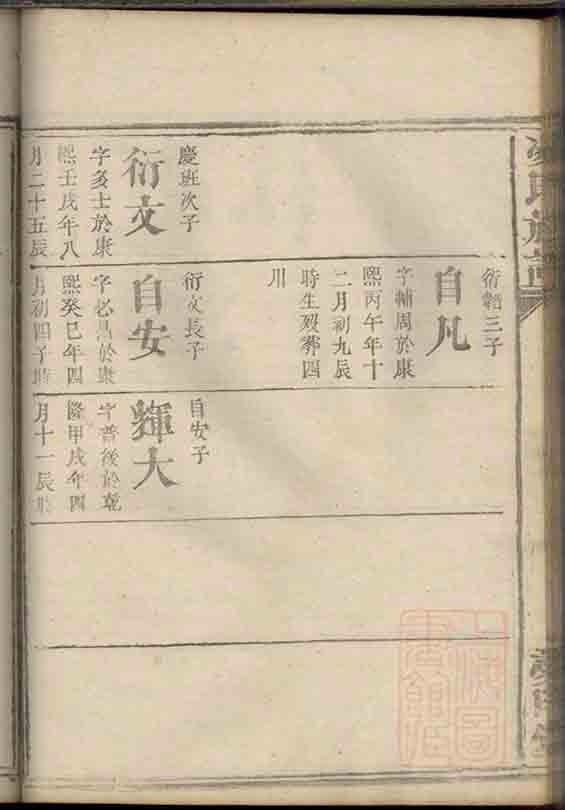 慶班次子
衍文
字多士於康
熙壬戌年八
月二十五辰
衍韜三子
自凡
字輔周於康
熙丙午年十
二月初九辰
時生歿葬四
川
衍文長子
自安
字必昌於康
熙癸巳年四
月初四子時
自安子
輝大
字普後於乾
隆甲戌年四
月十一辰時
氏族譜
上海圖書館藏